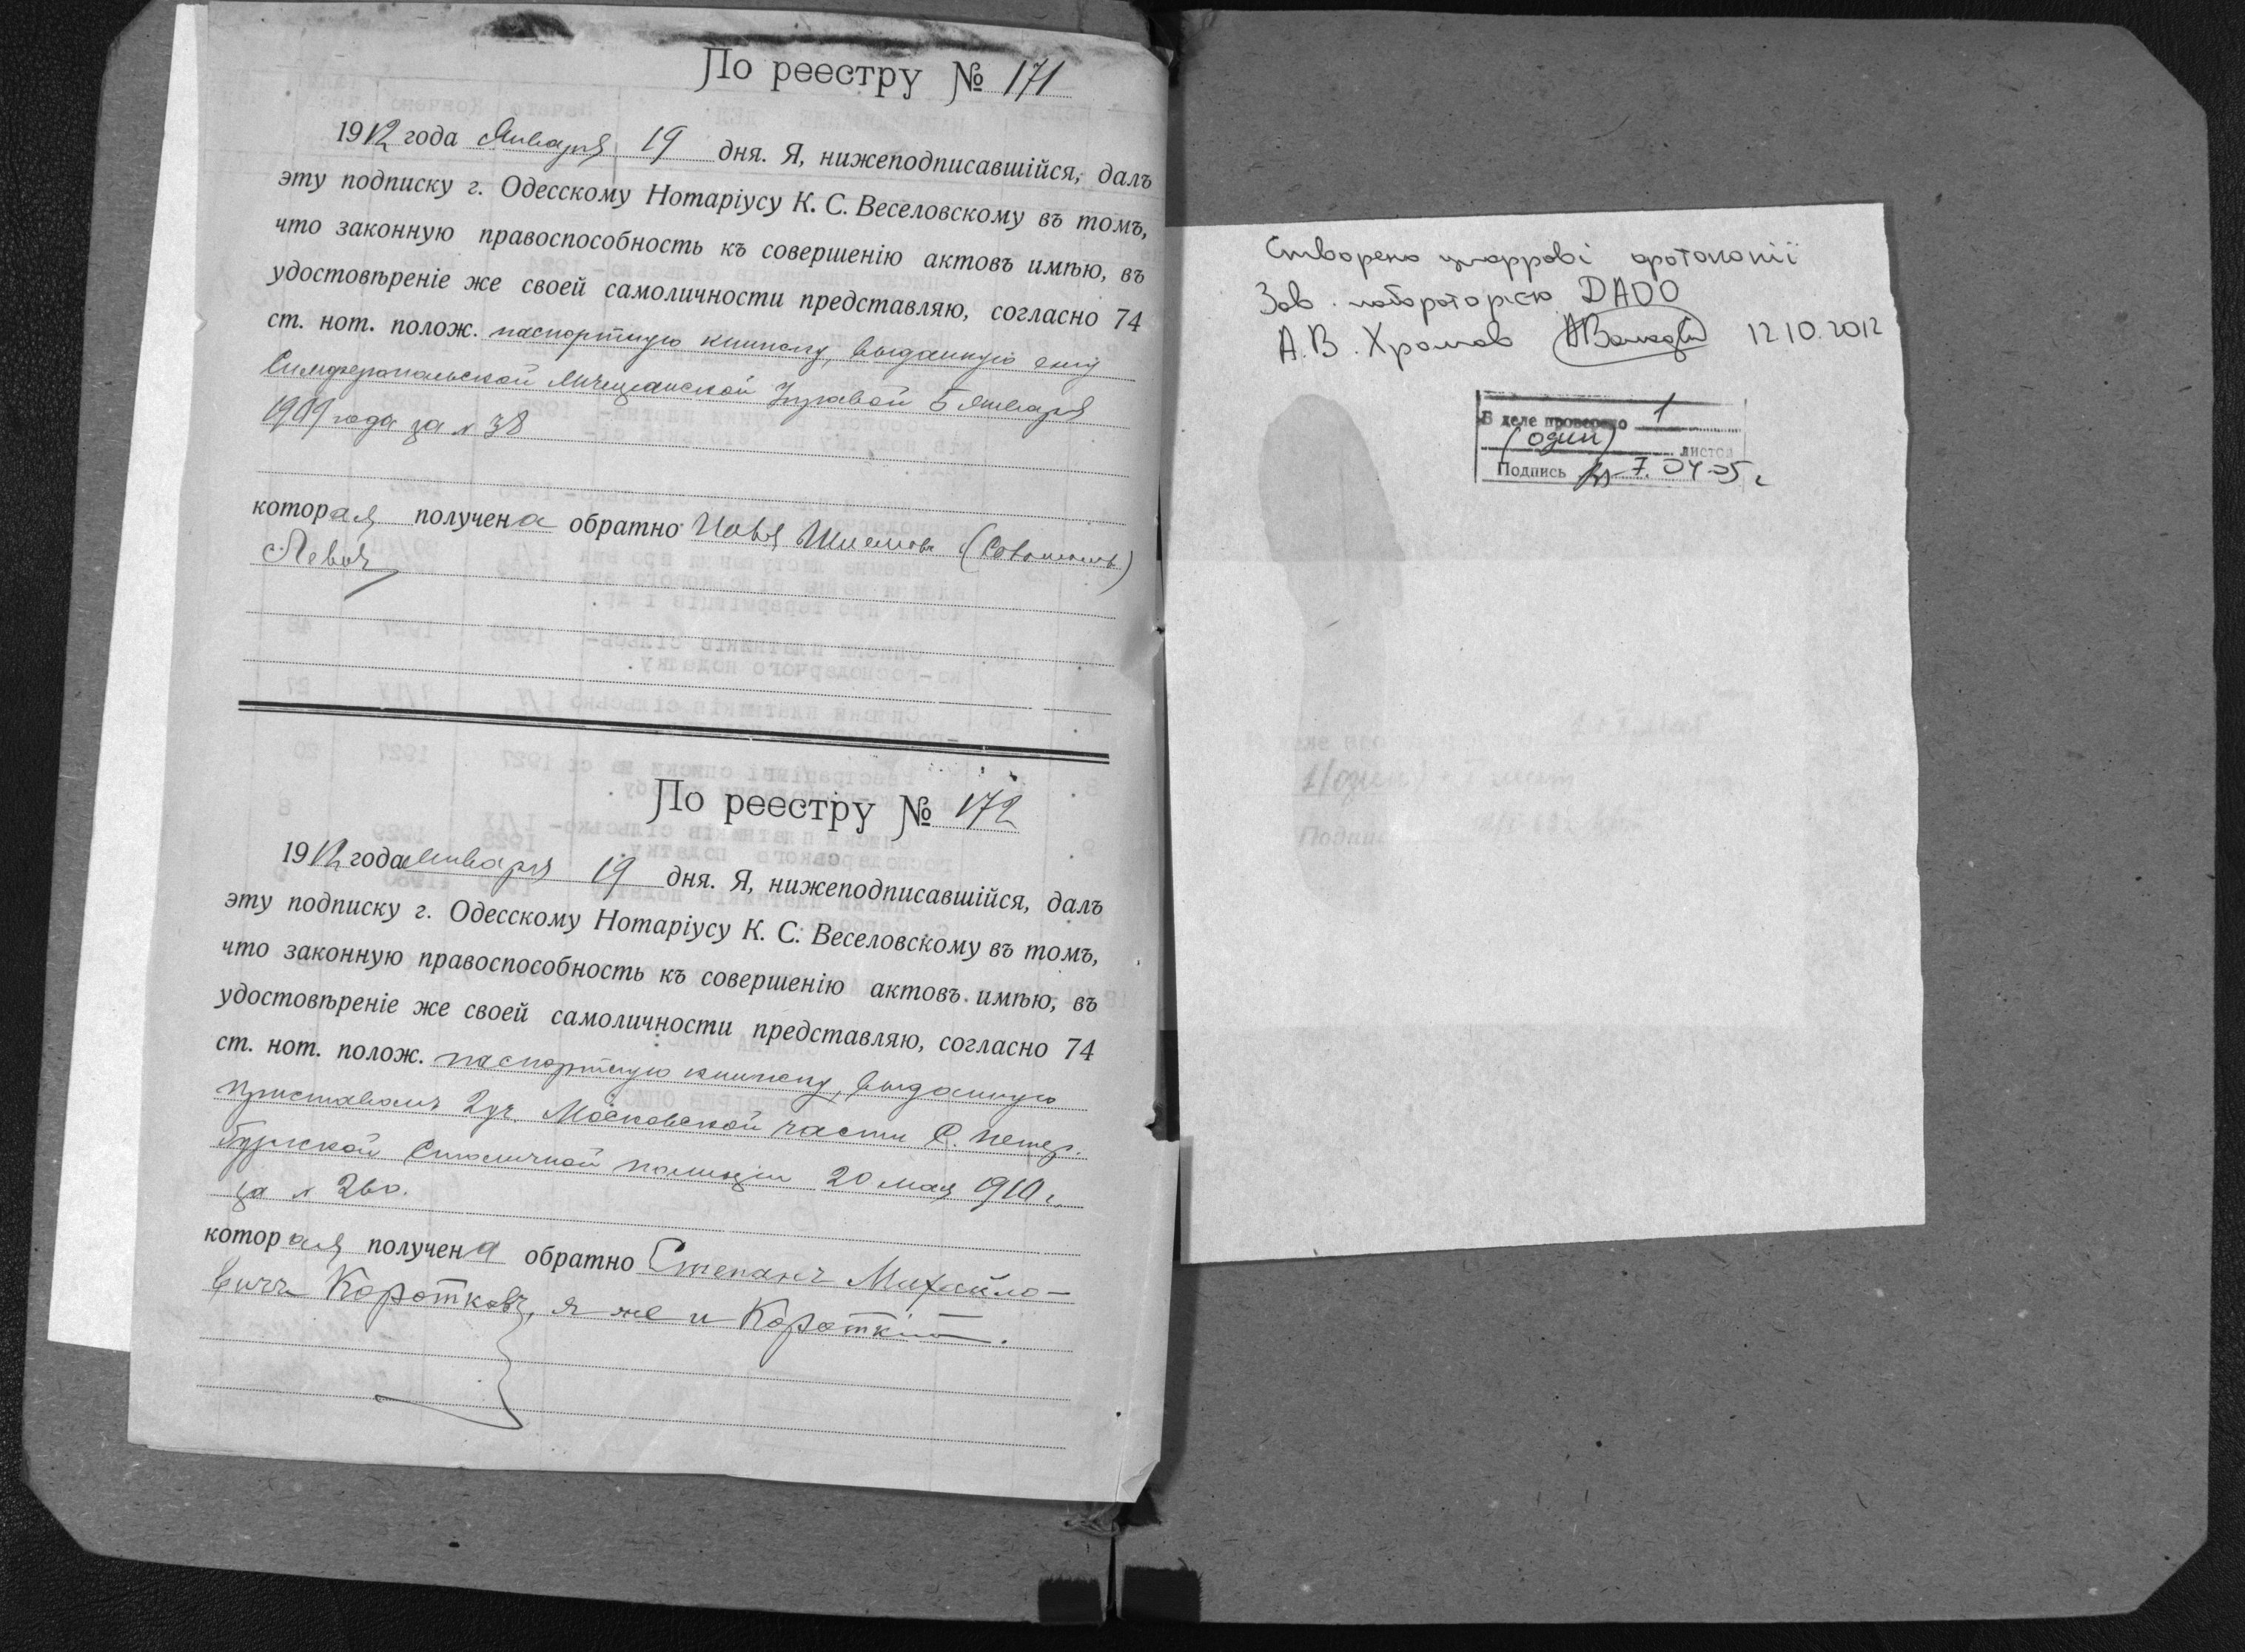 По реестру № 171
1912 года Января 19 дня. Я, нижеподписавшійся, далъ
эту подписку г. Одесскому Нотаріусу К. С. Веселовскому въ томъ,
что законную правоспособность къ совершенію актовъ имѣю, въ
удостовѣреніе же своей самоличности представляю, согласно 74
ст. нот. полож. паспортную книжку, выданную ему
Симферопольской Мѣщанской Управой 5 января
1909 года за № 38
которая получена обратно
По реестру № 172
1912 года января 19 дня. Я, нижеподписавшійся, далъ
эту подписку г. Одесскому Нотаріусу К. С. Веселовскому въ томъ,
что законную правоспособность къ совершенію актовъ имѣю, въ
удостовѣреніе же своей самоличности представляю, согласно 74
ст. нот. полож. паспортную книжку, выданную
приставомъ 2 уч. Московской части С. Петер.
бургской Столичной полиціи 20 мая 1910 г.
за № 260.
которая получена обратно Степанъ Михайло-
вичъ Коротковъ, я же и Короткій.
Створено цифрові фотокопії
Зав. лабораторією ДАОО
А. В. Храмов 12.10.2012
В деле проверено 1
(один) листов
Подпись 7.04.05 г